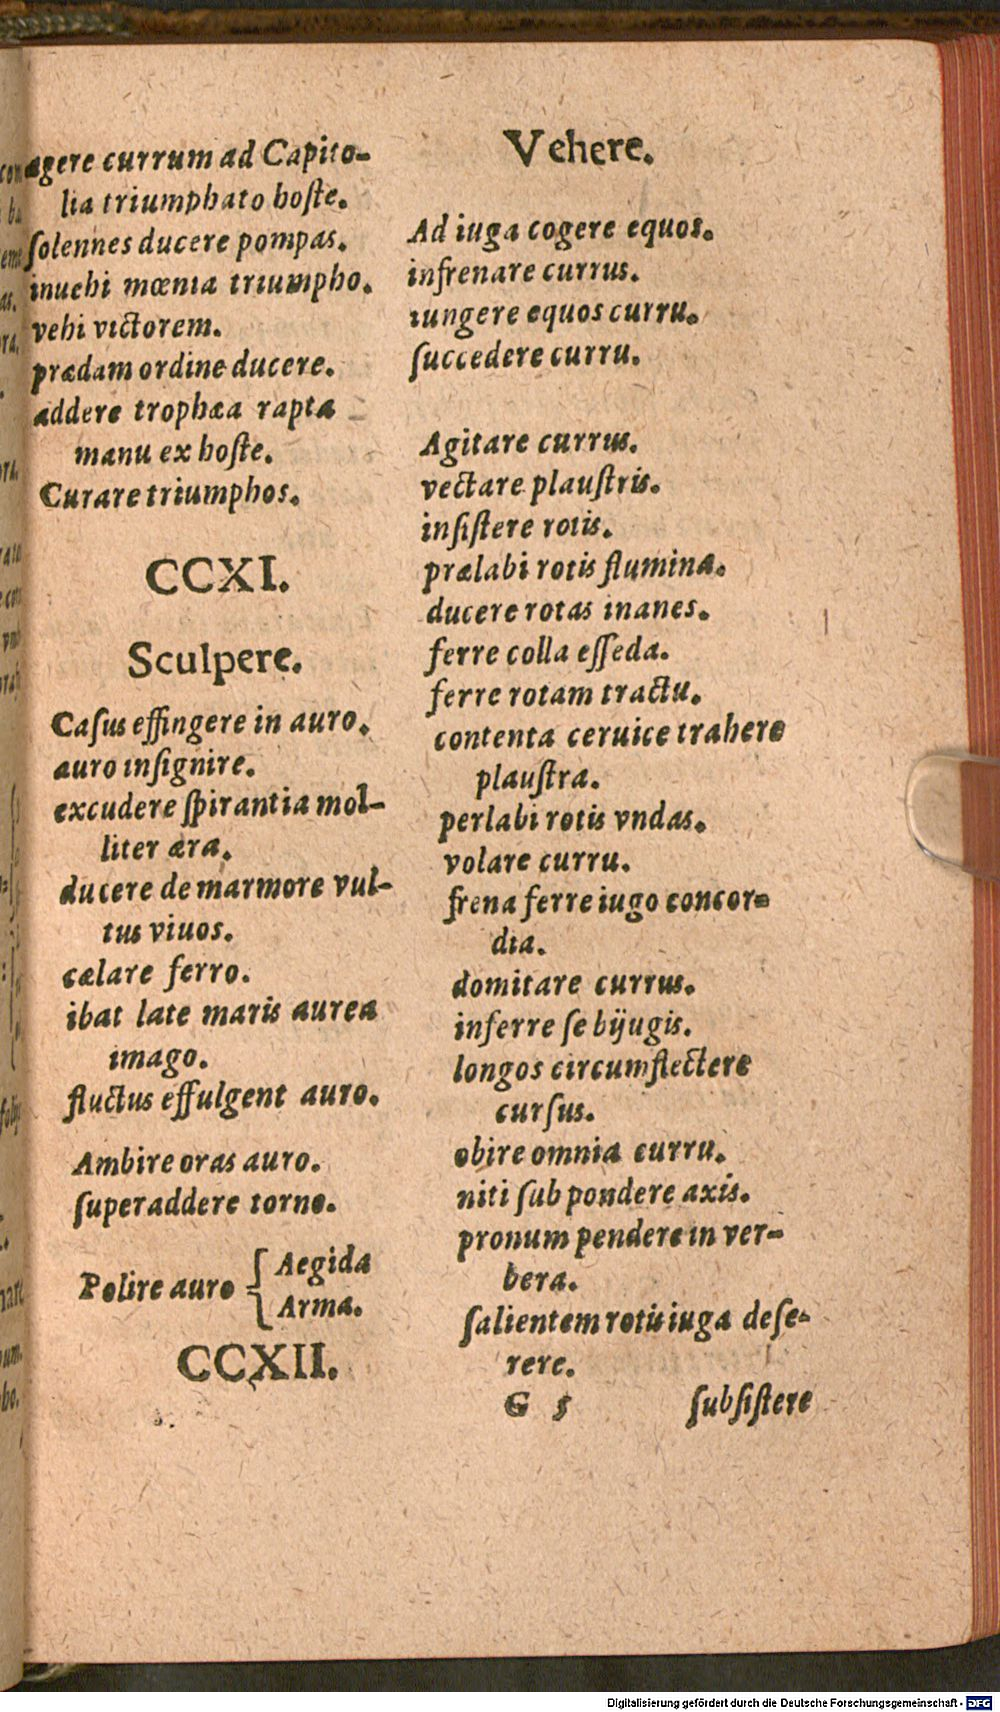 agere currum ad Capito-
lia triumphato hoſte.
ſolennes ducere pompas.
inuehi mœnia triumpho.
vehi victorem.
prædam ordine ducere.
addere trophæa rapta
manu ex hoſte.
Curare triumphos.
CCXI.
Sculpere.
Caſus effingere in auro.
auro inſignire.
excudere ſpirantia mol-
liter æra.
ducere de marmore vul-
tus viuos.
cælare ferro.
ibat late maris aurea
imago.
fluctus effulgent auro.
Ambire oras auro.
ſuperaddere torno.
Polire auro { Aegida
Arma.
CCXII.
Vehere.
Ad iuga cogere equos.
infrenare currus.
iungere equos curru.
ſuccedere curru.
Agitare currus.
vectare plauſtris.
inſiſtere rotis.
prælabi rotis flumina.
ducere rotas inanes.
ferre colla eſſeda.
ferre rotam tractu.
contenta ceruice trahere
plauſtra.
perlabi rotis vndas.
volare curru.
frena ferre iugo concor-
dia.
domitare currus.
inferre ſe bijugis.
longos circumflectere
curſus.
obire omnia curru.
niti ſub pondere axis.
pronum pendere in ver-
bera.
ſalientem rotis iuga deſe-
rere.
G 5 ſubſiſtere
Digitalisierung gefördert durch die Deutsche Forschungsgemeinschaft - DFG